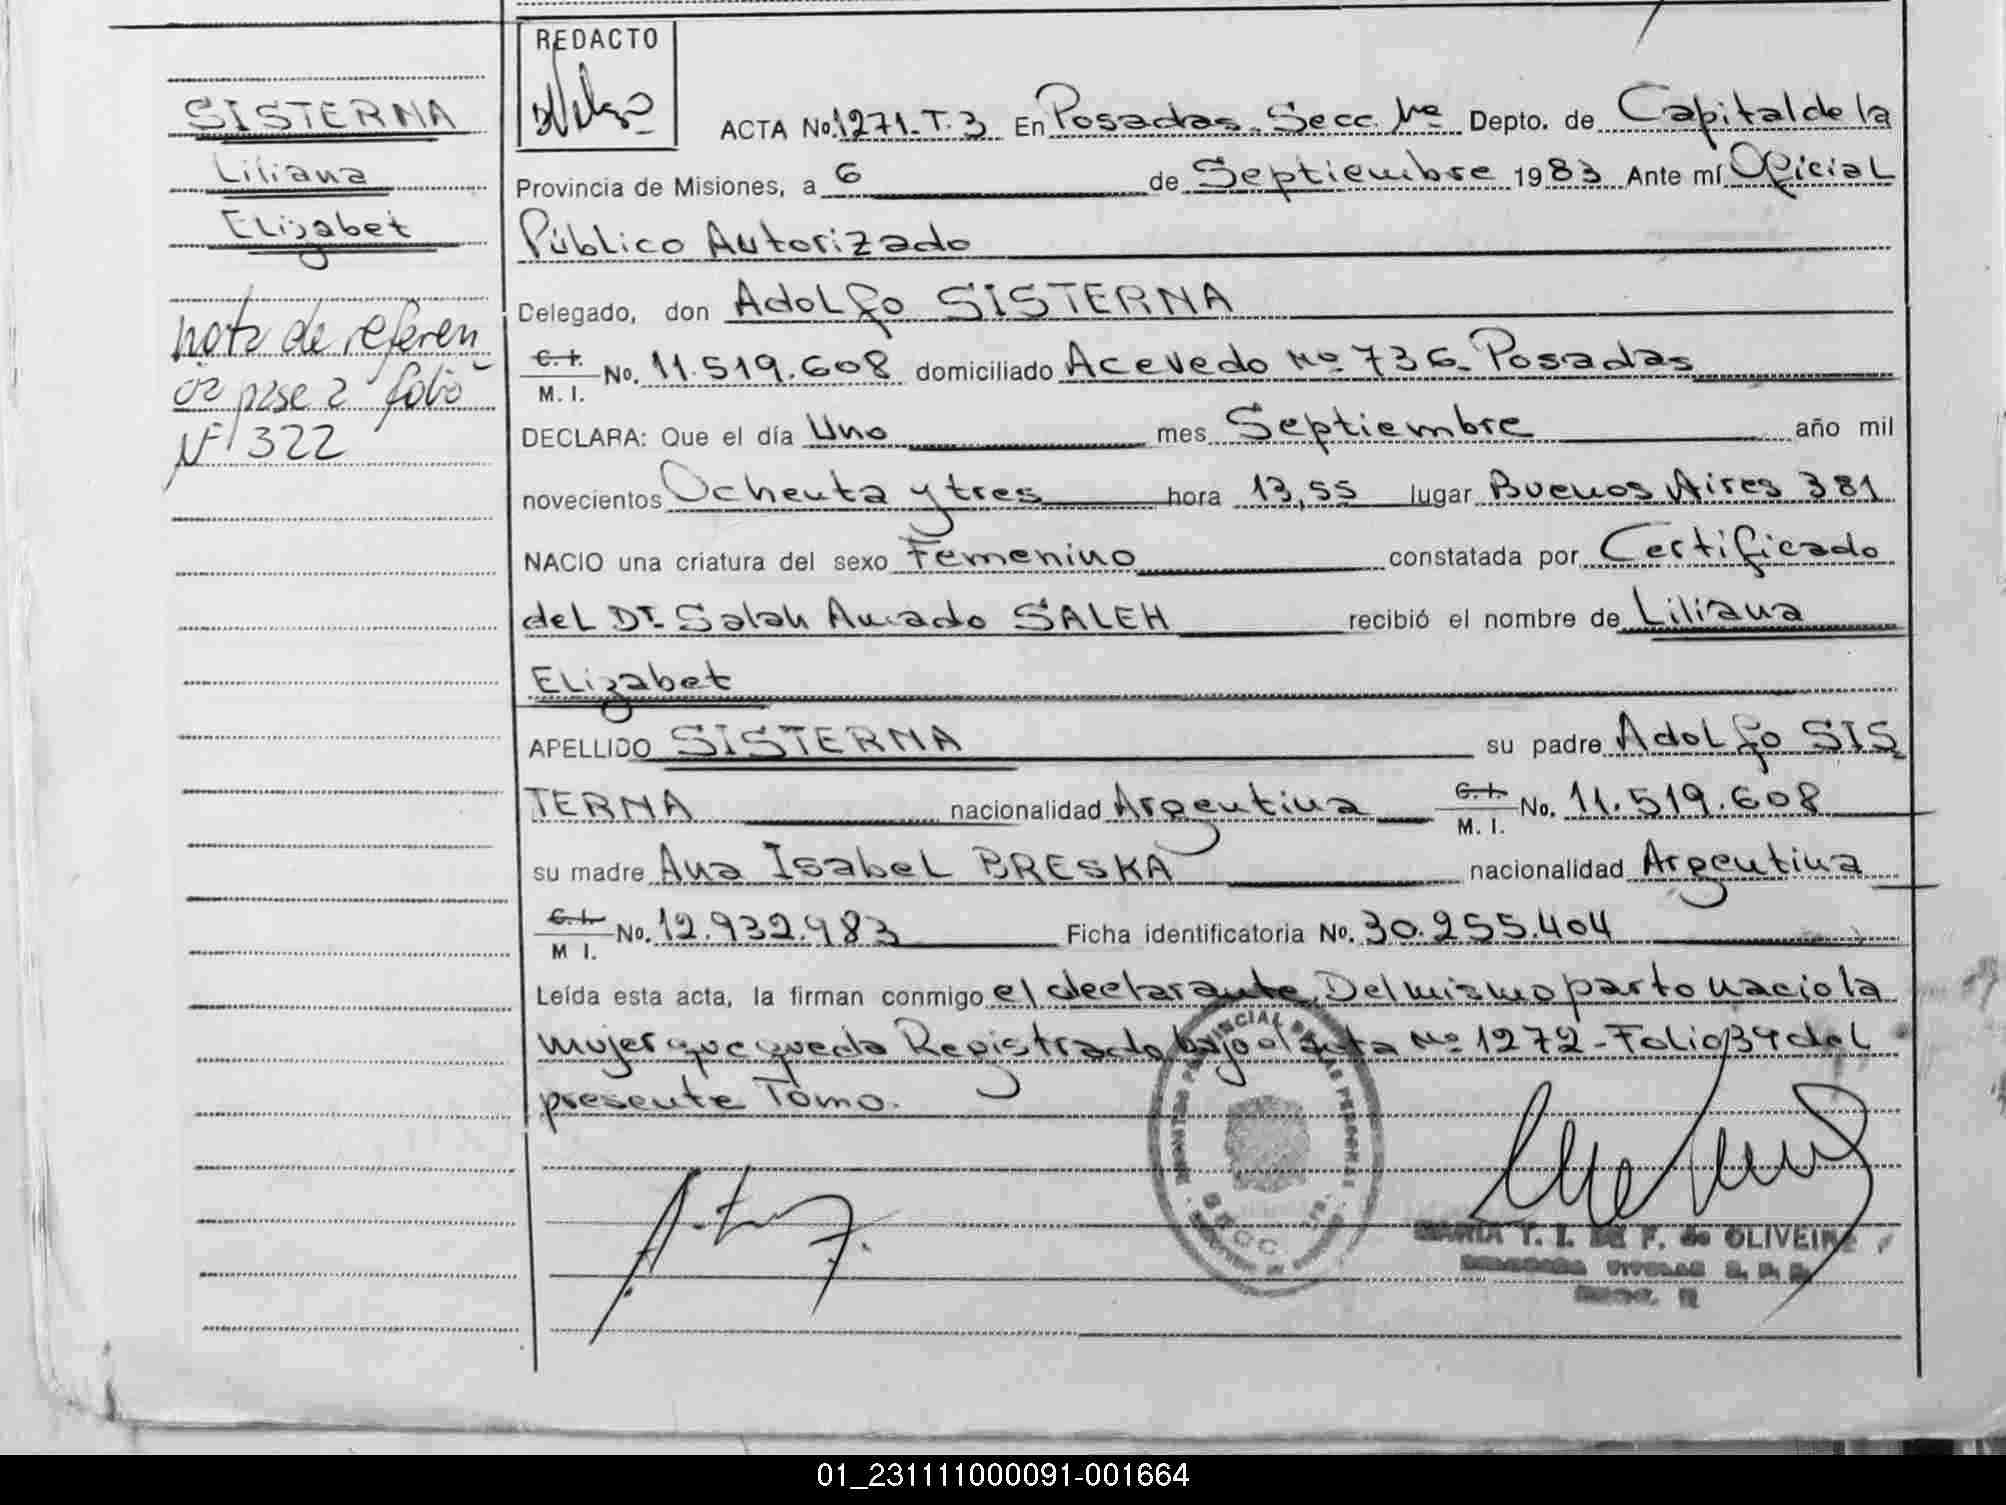 REDACTO
SISTERNA
Liliana
Elizabet
nota de referen
cia pase a folio
Nº 322
ACTA No. 1271-T.3 En Posadas Secc. 1ra Depto. de Capital de la
Provincia de Misiones, a 6 de Septiembre 1983 Ante mí Oficial
Público Autorizado
Delegado, don Adolfo SISTERNA
C. I. M. I. No. 11.519.608 domiciliado Acevedo Nº 736- Posadas
DECLARA: Que el día Uno mes Septiembre año mil
novecientos Ochenta y tres hora 13,55 lugar Buenos Aires 381
NACIO una criatura del sexo Femenino constatada por Certificado
del Dr. Salah Amado SALEH recibió el nombre de Liliana
Elizabet
APELLIDO SISTERNA su padre Adolfo SIS
TERNA nacionalidad Argentina C. I. M. I. No. 11.519.608
su madre Ana Isabel BRESKA nacionalidad Argentina
C. I. M I. No. 12.932.983 Ficha identificatoria No. 30.255.404
Leída esta acta, la firman conmigo el declarante. Del mismo parto nacio la
mujer que queda Registrada bajo el Acta Nº 1272-Folio 34 del
presente Tomo.
MARIA T. I. DE F. de OLIVEIRA
01_231111000091-001664